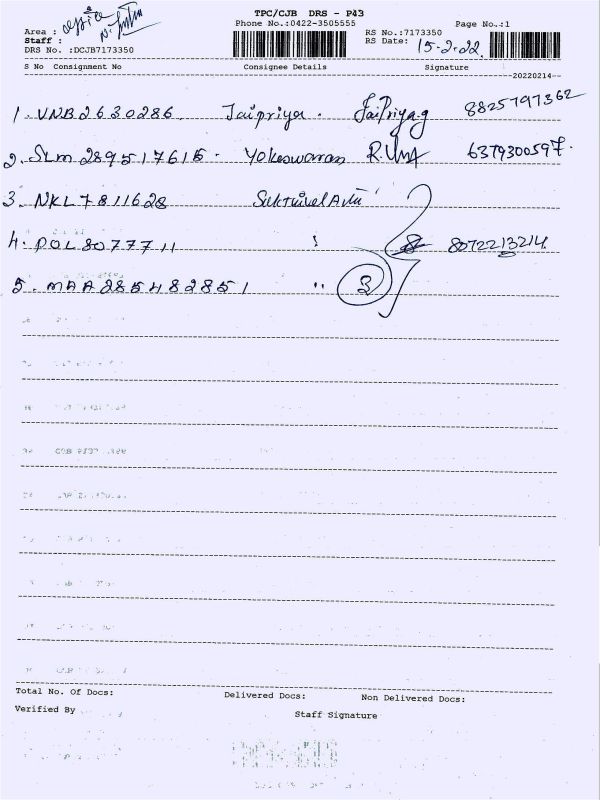 TPC/CJB DRS - P43
Phone No.:0422-3505555
Page No.:1
Area : office
Staff :
RS No.:7173350
DRS No. :DCJB7173350
RS Date: 15-2-22
S No Consignment No Consignee Details Signature
--20220214--
1. VNB2630286 Jaipriya. JaiPriya.g 8825797362
2. SLM 289517615. Yokeswaran 6379300597.
3. NKL 7811628
4. POL 8077711 8072213214
5. MAA 285482851 " 3
Total No. Of Docs: Delivered Docs: Non Delivered Docs:
Verified By Staff Signature